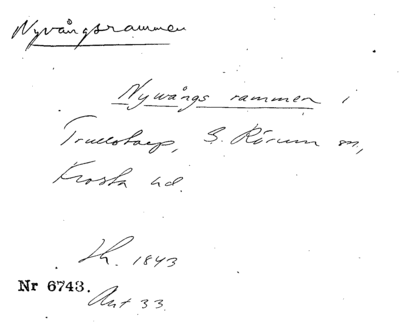 Nyvångsrammen
Nywångs rammen i
Trulstorp, S. Rörum sn,
Frosta hd.
Lh. 1843
Nr 6743.
Akt 33.